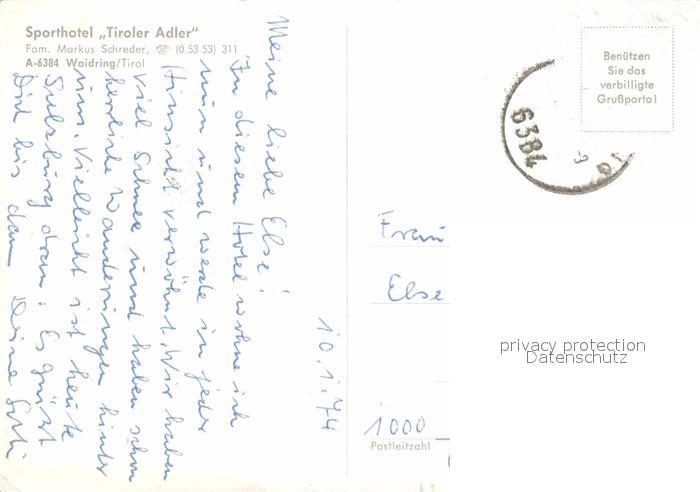 Sporthotel „Tiroler Adler"
Fam. Markus Schreder, ☎ (0 53 53) 311
A-6384 Waidring/Tirol
10.1.74
Meine liebe Else!
In diesem Hotel wohne ich
nun und werde in jeder
Hinsicht verwöhnt. Wir haben
viel Schnee und haben schon
herrliche Wanderungen hinter
uns. Vielleicht ist heute
Salzburg dran. Es grüßt
Dich bis dann Deine
Benützen
Sie das
verbilligte
Grußporto!
6384
Frau
Else
1000
Postleitzahl
privacy protection
Datenschutz